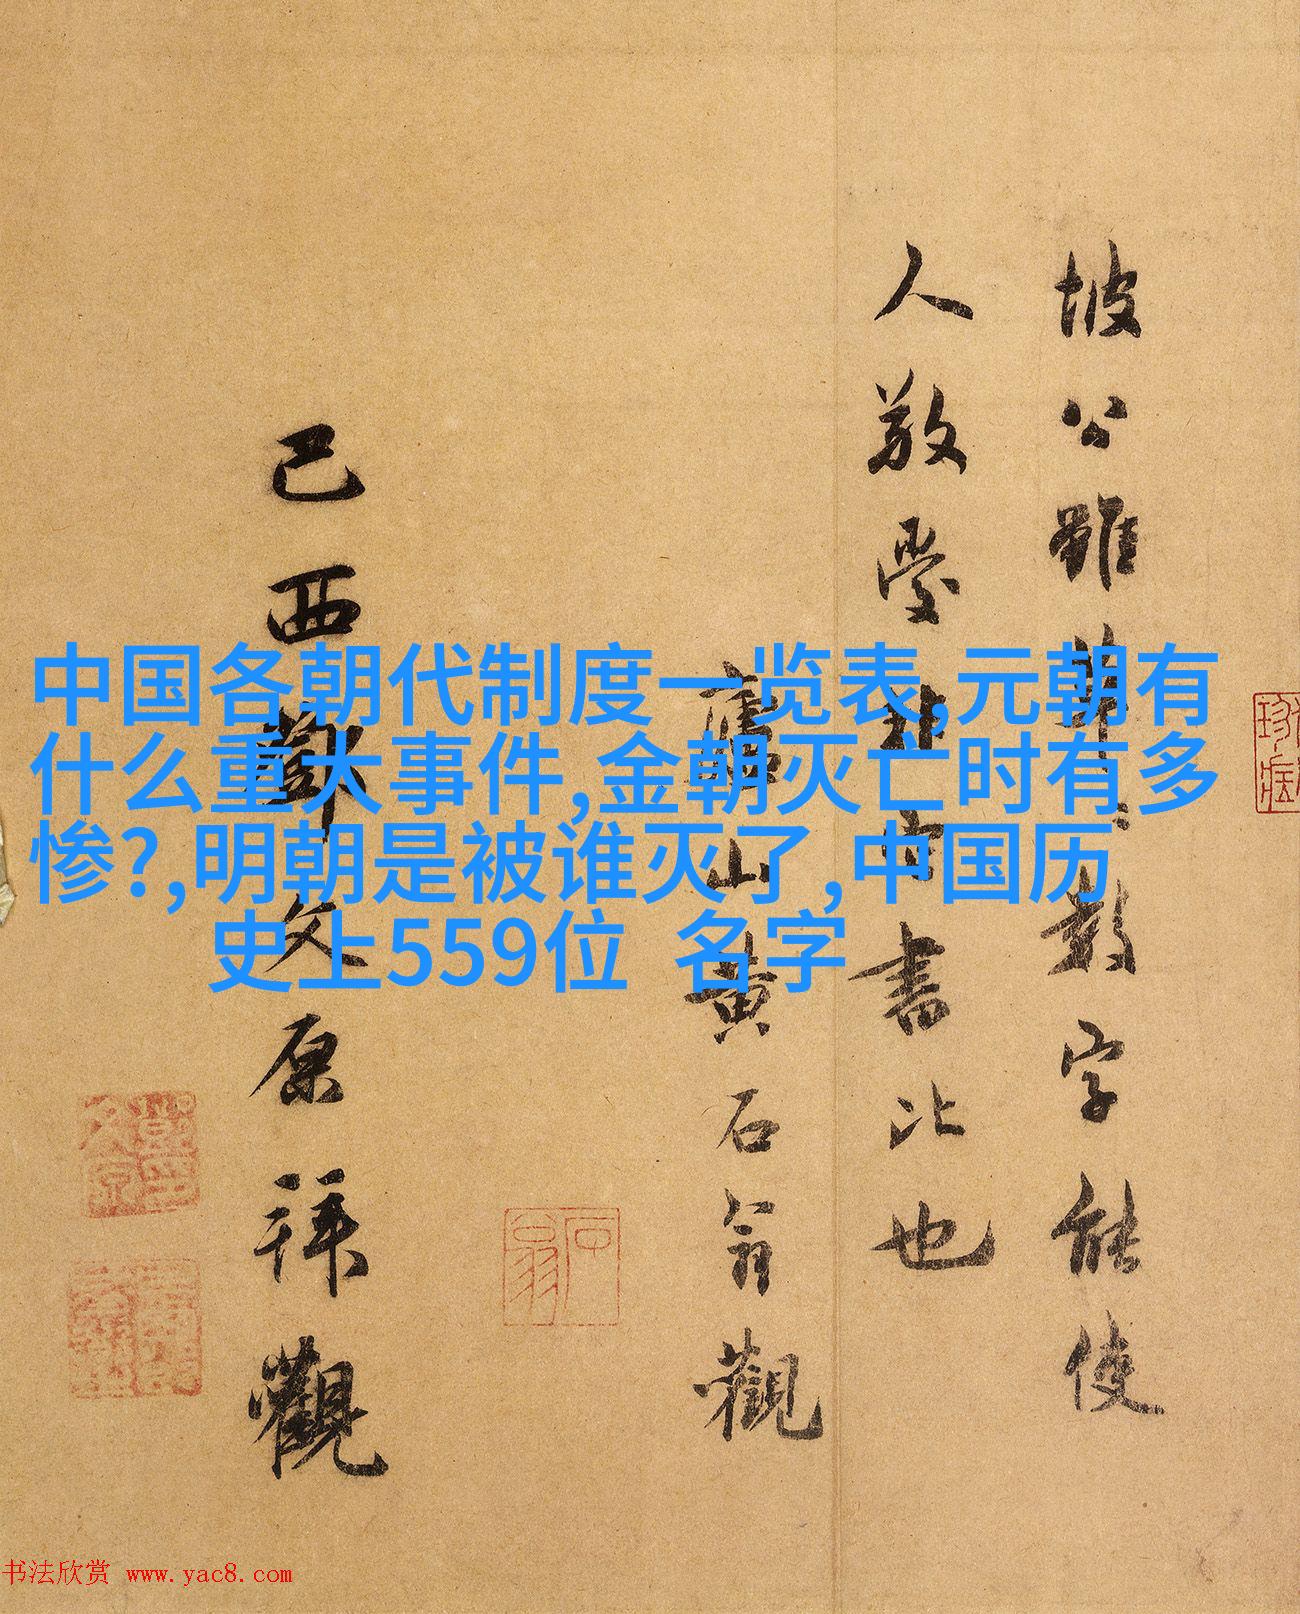 中国各朝代制度一览表,元朝有
什么重大事件,金朝灭亡时有多
惨?,明朝是被谁灭了,中国历
史上559位 名字
坡公雖草草數字能使
人敬愛书書比也
舊山黄石翁觀
己酉鄧文原拜觀
石翁
书法欣赏 www.yac8.com